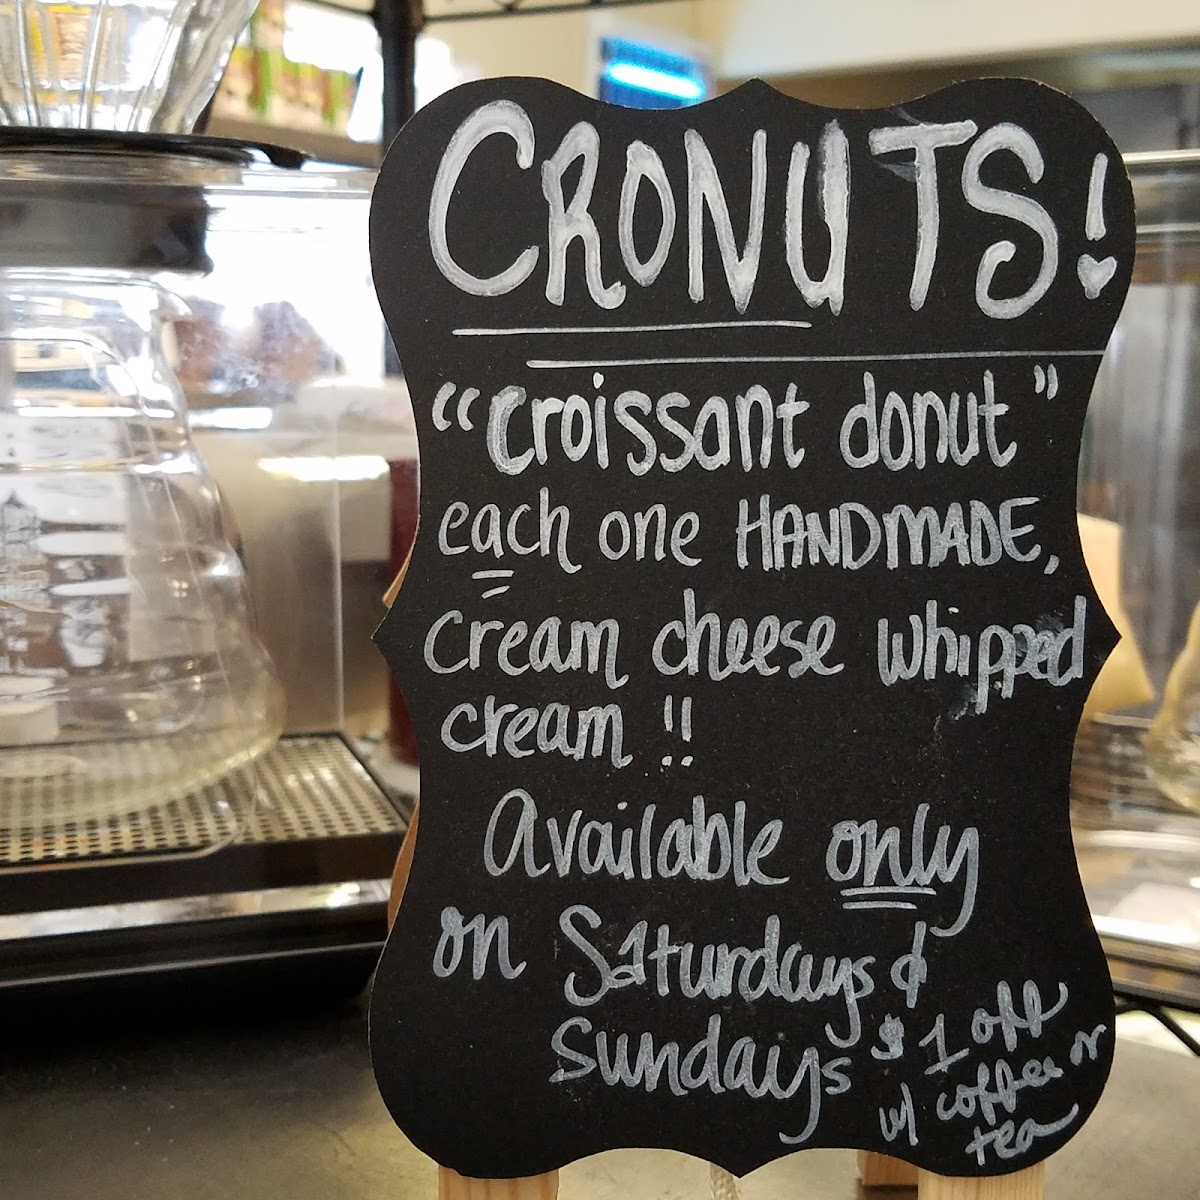 CRONUTS!
"croissant donut"
each one HANDMADE,
cream cheese whipped
cream !!
Available only
on Saturdays &
Sundays
$1 off
w/ coffee or
tea